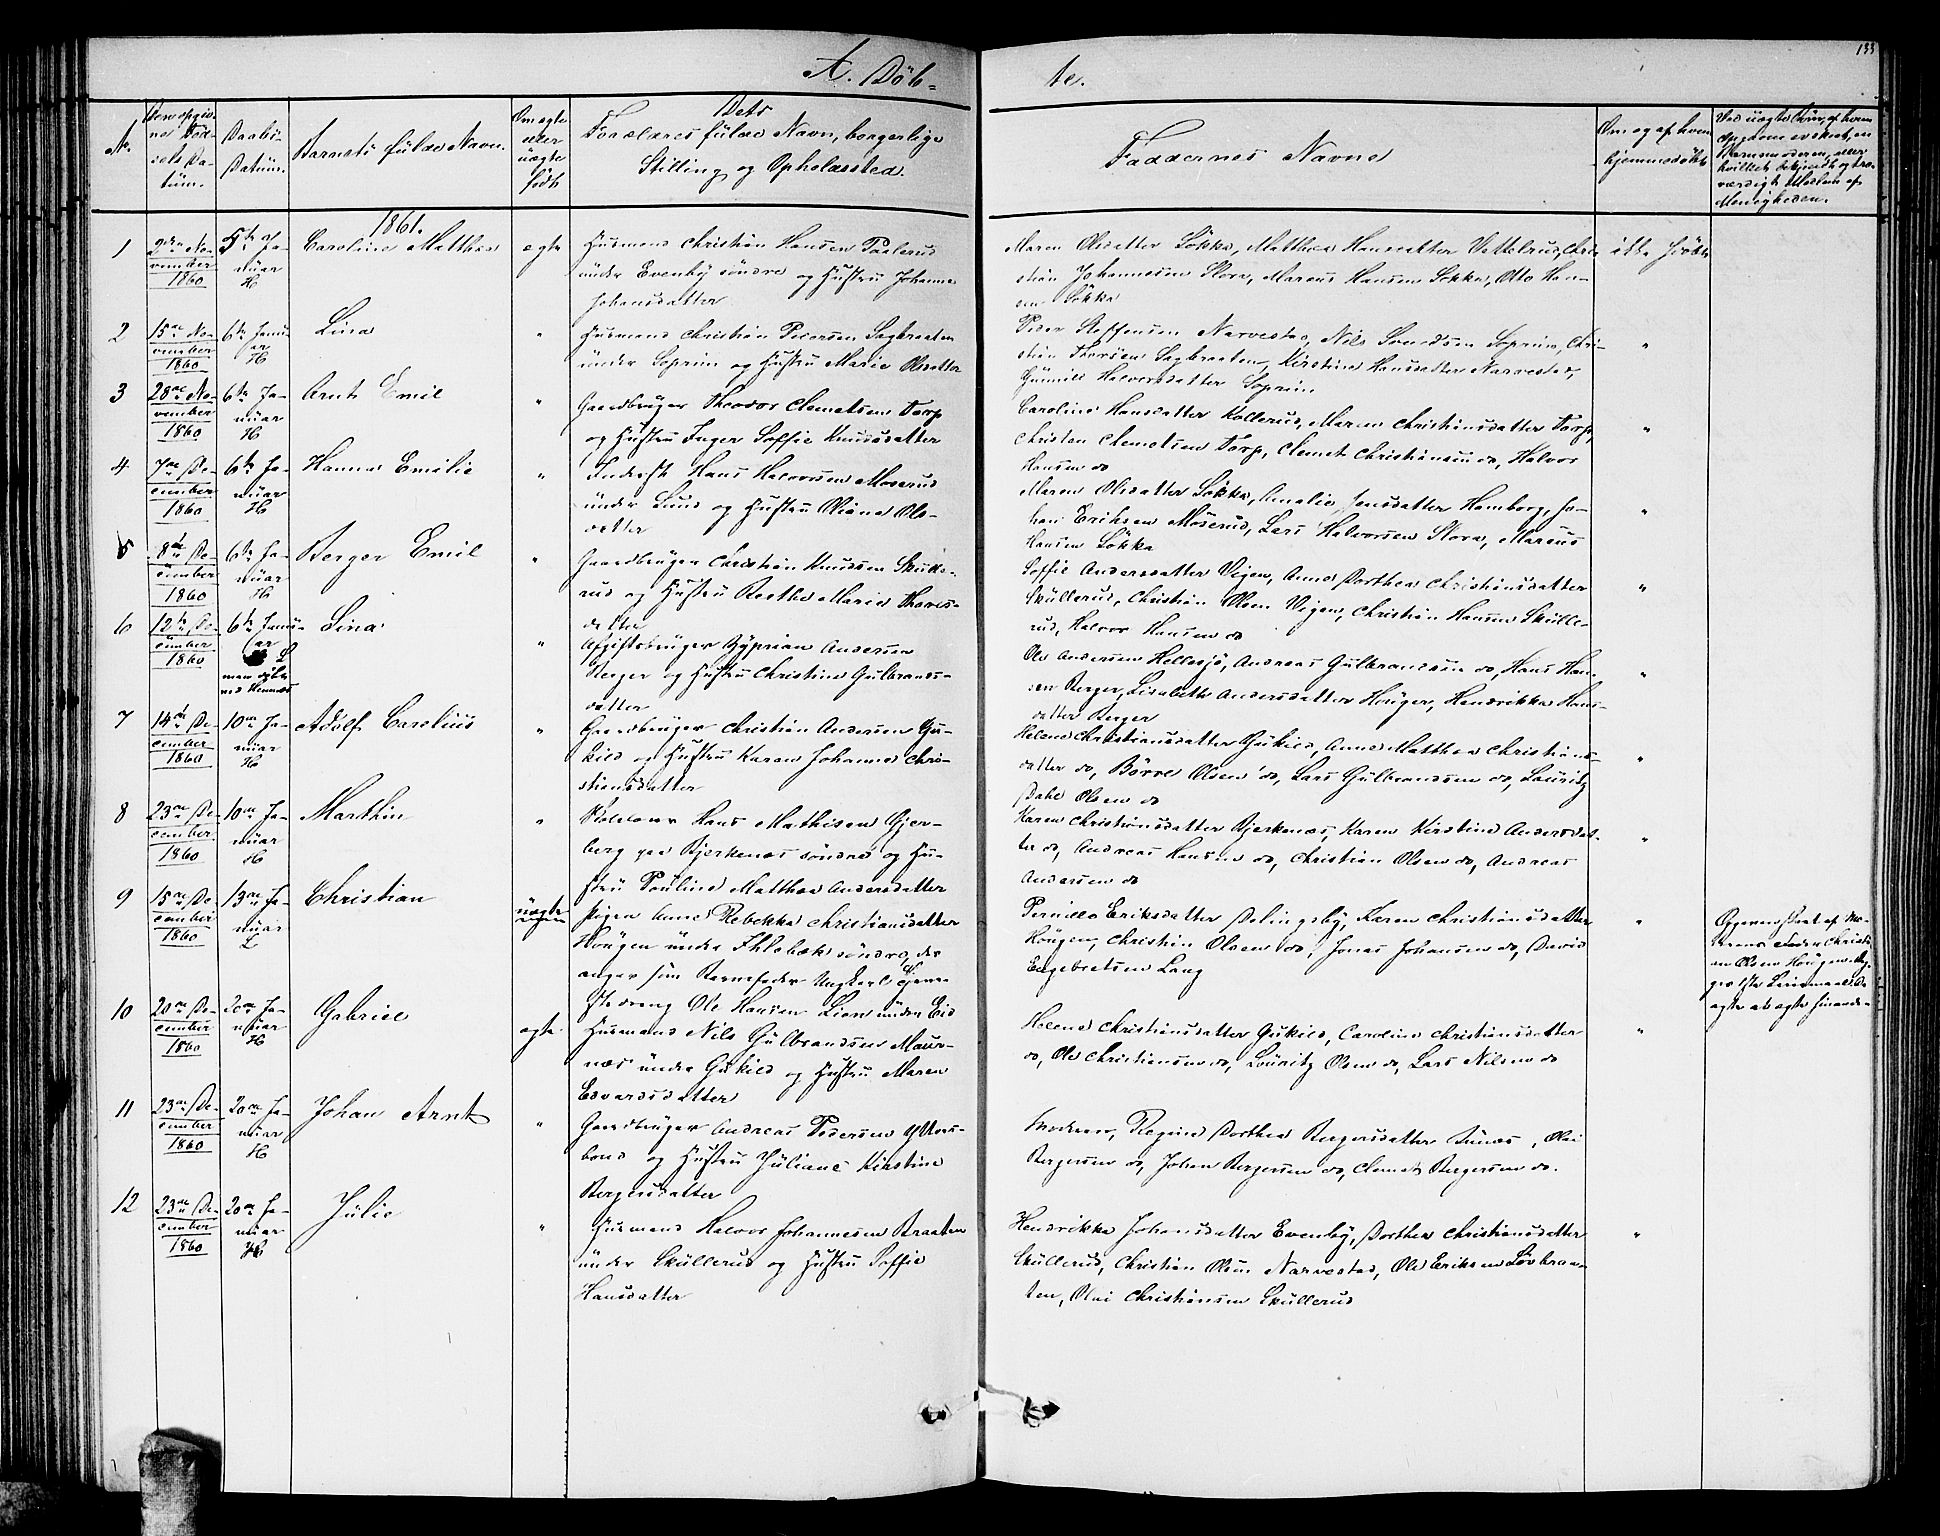 A. Döb-
te.
133
№
Den opgiv-
ne Fød-
sels Da-
tüm.
Daabs-
Datüm.
Barnets fülde Navn.
Om ægte
eller
üægte
födt
Dets
Forældres fülde Navn, borgerlige
Stilling og Opholdssted.
Faddernes Navne
Om og af hvem
hjemmedöbt
Menigheden.
1861.
1
2den No-
vember
1860
5te Ja-
nüar
H
Caroline Mathea
ægte
Husmand Christian Hansen Paalerud
ünder Evenby söndre og Hustru Johanne
Johansdatter
Maren Olsdatter Løkka, Mathea Hansdatter Vettelrud, Chri-
stian Johannesen Flora, Mareus Hansen Løkka, Otto Han-
sen Løkka
ikke hjdöbt
2
15de No-
vember
1860
6te Janu-
ar
H
Lina
"
Husmand Christian Pedersen Sagbraaten
ünder Soprim og Hustru Marie Olsdatter
Peder Steffensen Narvestad, Nils Svendsen Soprim, Chri-
stian Thorsen Sagbraaten, Kirstine Hansdatter Narvestad,
Gunnild Halvorsdatter Soprim
"
3
28de No-
vember
1860
6te Ja-
nüar
H
Arnt Emil
"
Gaardbruger Theodor Clemetsen Torp
og Hustru Inger Soffie Knudsdatter
Caroline Hansdatter Kollerud, Maren Christiansdatter Torp,
Christian Clemetsen Torp, Clemet Christiansen do, Halvor
Hansen do
"
4
7de De-
cember
1860
6te Ja-
nüar
H
Hanna Emilie
"
Inderst Hans Halvorsen Moserud
ünder Lund og Hustru Oliane Ols-
datter
Maren Olsdatter Løkka, Amalie Jensdatter Homborg, Jo-
han Eriksen Moserud, Lars Halvorsen Flora, Mareus
Hansen Løkka
"
5
8de De-
cember
1860
6te Ja-
nüar
H
Berger Emil
"
Gaardbruger Christian Knudsen Skulle-
rud og Hustru Berthe Marie Thores-
datter
Soffie Andersdatter Vigen, Anne Dorthea Christiansdatter
Skullerud, Christian Olsen Vigen, Christian Hansen Skulle-
rud, Halvor Hansen do
"
6
12te De-
cember
1860
6te Janu-
ar
L
Lina
"
Afgiftsbruger Zyprian Andersen
Berger og Hustru Christine Gulbrands-
datter
Ole Andersen Hellesjö, Andreas Gulbrandsen do, Hans Han-
sen Berger, Lisabeth Andersdatter Houger, Hendrikka Hans-
datter Berger
"
7
14de De-
cember
1860
10de Ja-
nüar
H
Adolf Carelius
"
Gaardbruger Christian Andersen Gu-
kild og Hustru Karen Johanne Chri-
stiansdatter
Helene Christiansdatter Gukild, Anne Mathea Christians-
datter do, Børre Olsen do, Lars Gulbrandsen do, Lauritz
Dahl Olsen do
"
8
23de De-
cember
1860
10de Ja-
nüar
H
Marthin
"
Skolelærer Hans Mathisen Gjer-
berg paa Bjerkenæs söndre og Hu-
stru Pauline Mathea Andersdatter
Karen Christiansdatter Bjerkenæs, Karen Kirstine Andersdat-
ter do, Andreas Hansen do, Christian Olsen do, Andreas
Andersen do
"
9
15de De-
cember
1860
13de Ja-
nüar
L
Christian
üægte
Pigen Anne Rebekka Christiansdatter
Hougen ünder Ihlebæk söndre, der
angav som Barnefader Ungkarl og Tjene-
stedreng Ole Hansen Lien ünder Eid
Pernille Eriksdatter Delingsby, Karen Christiansdatter
Hougen, Christian Olsen do, Jonas Johansen do, David
Engebretsen Lang
"
10
20de De-
cember
1860
20de Ja-
nüar
H
Gabriel
ægte
Husmand Nils Gulbrandsen Maur-
næs ünder Gukild og Hustru Maren
Edvardsdatter
Helene Christiansdatter Gukild, Caroline Christiansdatter
do, Ole Christiansen do, Lauritz Olsen do, Lars Nilsen do
"
11
23de De-
cember
1860
20de Ja-
nüar
H
Johan Arnt
"
Gaardbruger Andreas Pedersen
og Hustru Juliane Kirstine
Bergersdatter
Moderen, Regine Dorthea Bergersdatter, Olai
Bergersen do, Johan Bergersen do, Clemet Bergersen do.
12
23de De-
cember
1860
20de Ja-
nüar
H
Julie
"
Husmand Halvor Johannesen Braaten
ünder Skullerud og Hustru Soffie
Hansdatter
Hendrikka Johansdatter Evenby, Dorthea Christiansdatter
Skullerud, Christian Olsen Narvestad, Ole Eriksen Løvbraa-
ten, Olai Christiansen Skullerud
"